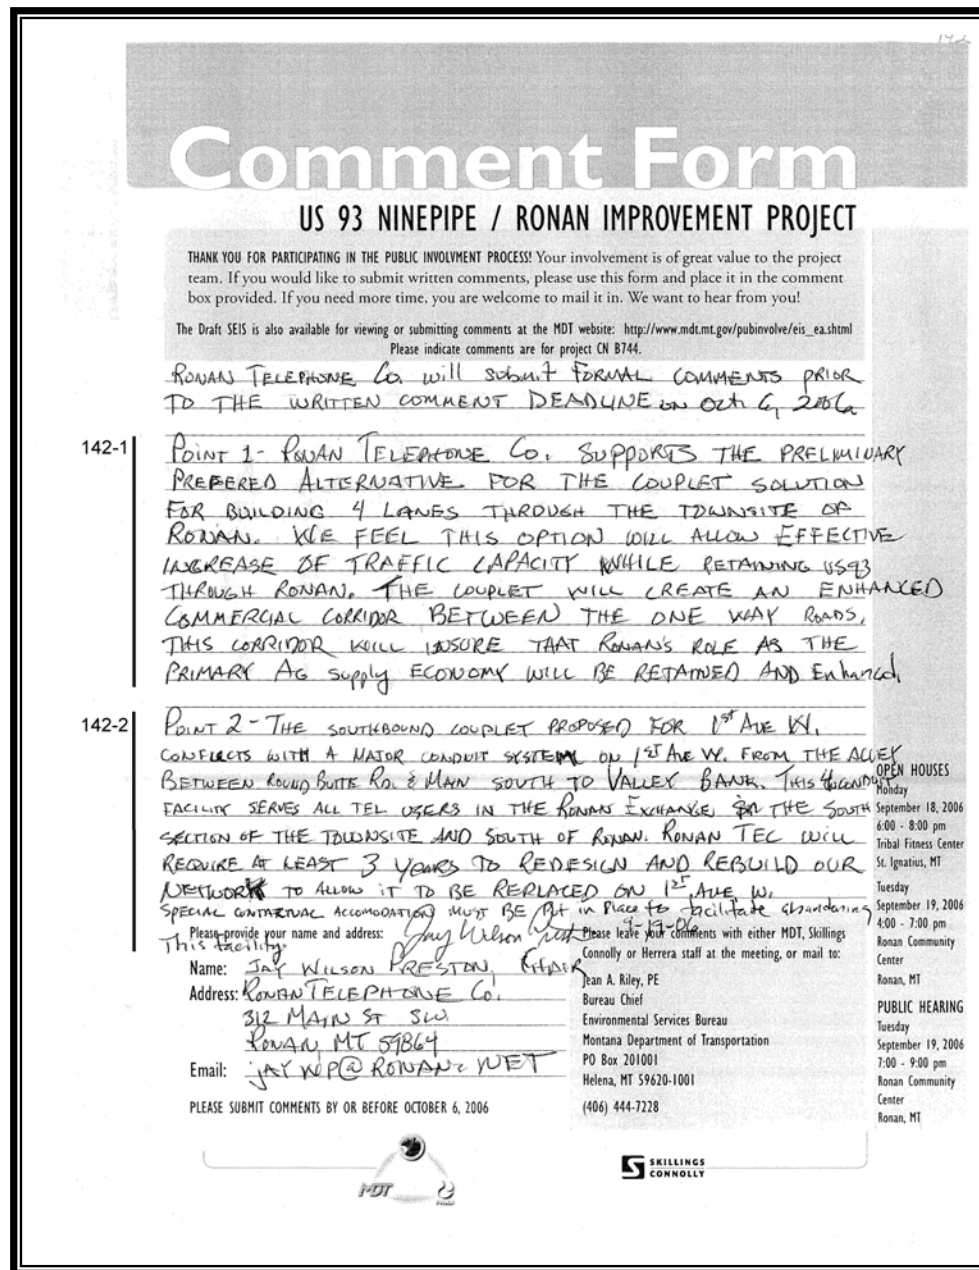 142
Comment Form
US 93 NINEPIPE / RONAN IMPROVEMENT PROJECT
THANK YOU FOR PARTICIPATING IN THE PUBLIC INVOLVMENT PROCESS! Your involvement is of great value to the project
team. If you would like to submit written comments, please use this form and place it in the comment
box provided. If you need more time, you are welcome to mail it in. We want to hear from you!
The Draft SEIS is also available for viewing or submitting comments at the MDT website: http://www.mdt.mt.gov/pubinvolve/eis_ea.shtml
Please indicate comments are for project CN B744.
RONAN TELEPHONE Co. will submit FORMAL COMMENTS PRIOR
TO THE WRITTEN COMMENT DEADLINE on Oct. 6, 2006
142-1
POINT 1- RONAN TELEPHONE Co. SUPPORTS THE PRELIMINARY
PREFERED ALTERNATIVE FOR THE COUPLET SOLUTION
FOR BUILDING 4 LANES THROUGH THE TOWNSITE OF
RONAN. WE FEEL THIS OPTION WILL ALLOW EFFECTIVE
INCREASE OF TRAFFIC CAPACITY WHILE RETAINING US93
THROUGH RONAN. THE COUPLET WILL CREATE AN ENHANCED
COMMERCIAL CORRIDOR BETWEEN THE ONE WAY ROADS.
THIS CORRIDOR WILL INSURE THAT RONAN'S ROLE AS THE
PRIMARY AG supply ECONOMY WILL BE RETAINED AND Enhanced.
142-2
POINT 2 - THE SOUTHBOUND COUPLET PROPOSED FOR 1st AVE W.
CONFLICTS WITH A MAJOR CONDUIT SYSTEM ON 1ST AVE W. FROM THE ALLEY
BETWEEN ROUND BUTTE RD. & MAIN SOUTH TO VALLEY BANK. THIS 4 CONDUIT
FACILITY SERVES ALL TEL USERS IN THE RONAN EXCHANGE IN THE SOUTH
SECTION OF THE TOWNSITE AND SOUTH OF RONAN. RONAN TEC WILL
REQUIRE AT LEAST 3 years TO REDESIGN AND REBUILD OUR
NETWORK TO ALLOW IT TO BE REPLACED ON 1ST AVE W.
SPECIAL CONTARTUAL ACCOMODATION MUST BE Put in Place to facilitate abandoning
This facility.
Jay Wilson Preston 9-19-06
Please provide your name and address:
Name: JAY WILSON PRESTON, CHAIR
Address: RONAN TELEPHONE Co.
312 MAIN ST SW.
RONAN, MT 59864
Email: JAYWP@RONAN.NET
PLEASE SUBMIT COMMENTS BY OR BEFORE OCTOBER 6, 2006
Please leave your comments with either MDT, Skillings
Connolly or Herrera staff at the meeting, or mail to:
Jean A. Riley, PE
Bureau Chief
Environmental Services Bureau
Montana Department of Transportation
PO Box 201001
Helena, MT 59620-1001
(406) 444-7228
OPEN HOUSES
Monday
September 18, 2006
6:00 - 8:00 pm
Tribal Fitness Center
St. Ignatius, MT
Tuesday
September 19, 2006
4:00 - 7:00 pm
Ronan Community
Center
Ronan, MT
PUBLIC HEARING
Tuesday
September 19, 2006
7:00 - 9:00 pm
Ronan Community
Center
Ronan, MT
MDT
SKILLINGS
CONNOLLY